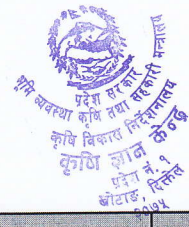 प्रदेश सरकार
भूमि व्यवस्था कृषि तथा सहकारी मन्त्रालय
कृषि विकास निर्देशनालय
कृषि ज्ञान केन्द्र
प्रदेश नं. १
खोटाङ दिक्तेल
२०७५